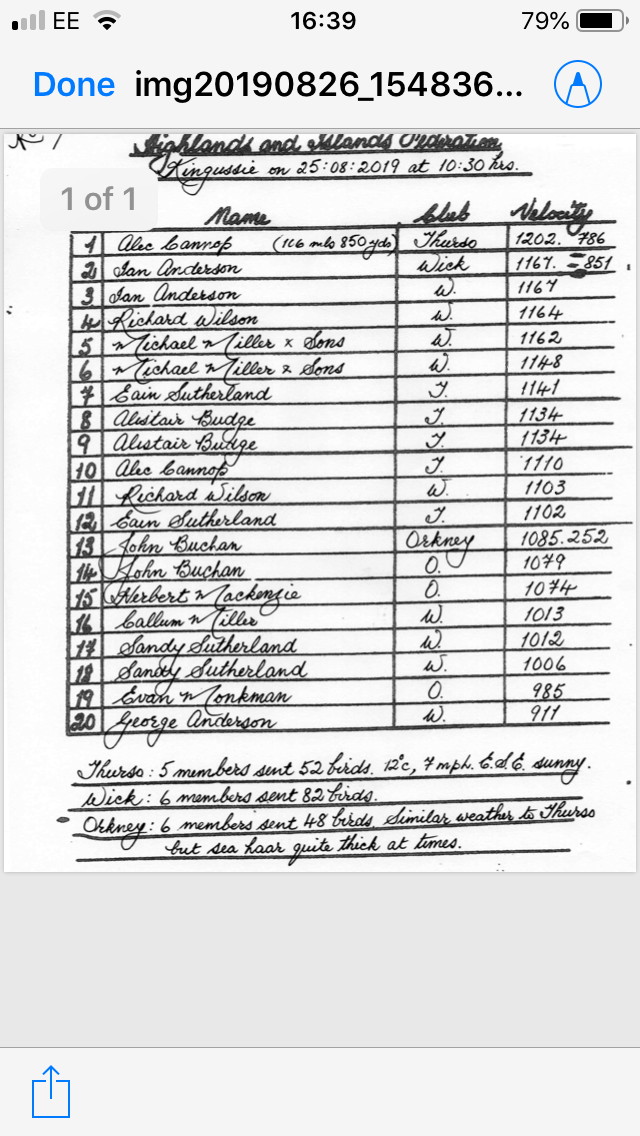 EE 16:39 79%
Done img20190826_154836...
Highlands and Islands Federation
Kingussie on 25:08:2019 at 10:30 hrs.
1 of 1
Name Club Velocity
1 Alec Cannop (106 mls 850 yds) Thurso 1202. 786
2 Ian Anderson Wick 1167. 851
3 Ian Anderson W. 1167
4 Richard Wilson W. 1164
5 Michael Miller & Sons W. 1162
6 Michael Miller & Sons W. 1148
7 Eain Sutherland T. 1141
8 Alistair Budge T. 1134
9 Alistair Budge T. 1134
10 Alec Cannop T. 1110
11 Richard Wilson W. 1103
12 Eain Sutherland T. 1102
13 John Buchan Orkney 1085.252
14 John Buchan O. 1079
15 Herbert Mackenzie O. 1074
16 Callum Miller W. 1013
17 Sandy Sutherland W. 1012
18 Sandy Sutherland W. 1006
19 Evan Monkman O. 985
20 George Anderson W. 911
Thurso: 5 members sent 52 birds. 12°c, 7 mph. E.S.E. sunny.
Wick: 6 members sent 82 birds.
Orkney: 6 members sent 48 birds. Similar weather to Thurso
but sea haar quite thick at times.